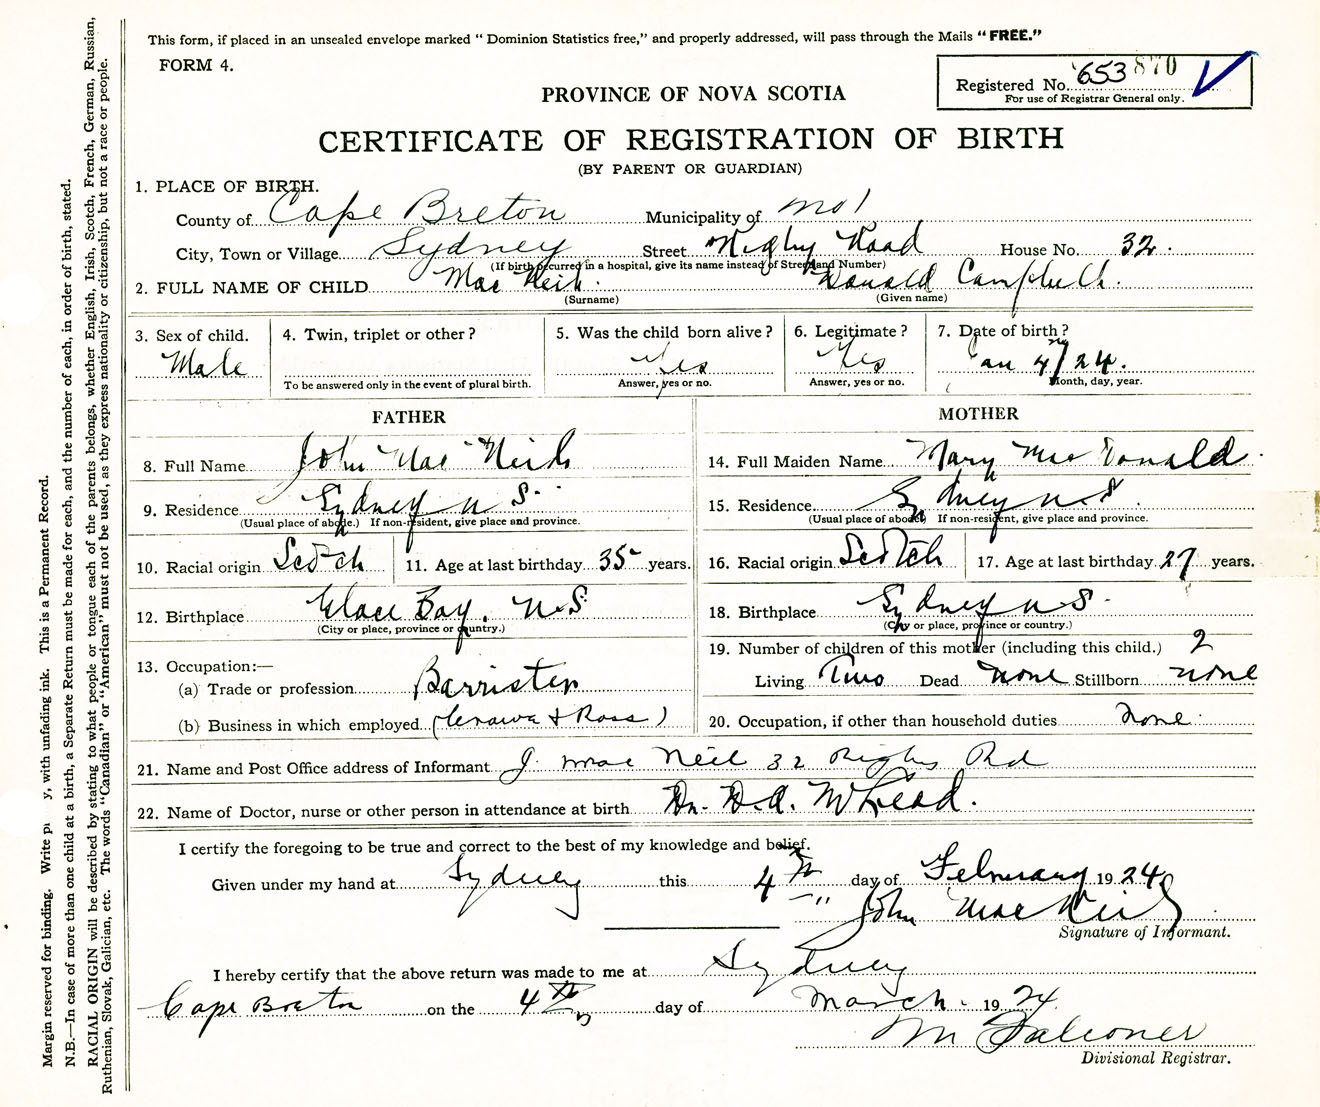 This form, if placed in an unsealed envelope marked " Dominion Statistics free," and properly addressed, will pass through the Mails "FREE."
FORM 4.
Registered No. 653 870
For use of Registrar General only.
PROVINCE OF NOVA SCOTIA
CERTIFICATE OF REGISTRATION OF BIRTH
(BY PARENT OR GUARDIAN)
1. PLACE OF BIRTH.
County of Cape Breton Municipality of No 1
City, Town or Village Sydney Street Rigby Road House No. 32
(If birth occurred in a hospital, give its name instead of Street and Number)
2. FULL NAME OF CHILD Mac Neil Donald Campbell
(Surname) (Given name)
3. Sex of child. 4. Twin, triplet or other? 5. Was the child born alive? 6. Legitimate? 7. Date of birth?
Male Yes Yes Jan 4/24.
To be answered only in the event of plural birth. Answer, yes or no. Answer, yes or no. Month, day, year.
FATHER MOTHER
8. Full Name John Mac Neil 14. Full Maiden Name Mary Mac Donald
9. Residence Sydney N S. 15. Residence Sydney N.S
(Usual place of abode.) If non-resident, give place and province. (Usual place of abode.) If non-resident, give place and province.
10. Racial origin Scotch 11. Age at last birthday 35 years. 16. Racial origin Scotch 17. Age at last birthday 27 years.
12. Birthplace Glace Bay. N.S. 18. Birthplace Sydney N S.
(City or place, province or country.) (City or place, province or country.)
19. Number of children of this mother (including this child.) 2
13. Occupation:—
(a) Trade or profession Barrister Living Two Dead none Stillborn none
(b) Business in which employed ( & Ross) 20. Occupation, if other than household duties none
21. Name and Post Office address of Informant J. Mac Neil 32 Rigby Rd
22. Name of Doctor, nurse or other person in attendance at birth Dr. D.A. McLeod.
I certify the foregoing to be true and correct to the best of my knowledge and belief.
Given under my hand at Sydney this 4th day of February 1924
John MacNeil
Signature of Informant.
I hereby certify that the above return was made to me at Sydney
Cape Breton on the 4th day of March 1924
M Falconer
Divisional Registrar.
Margin reserved for binding. Write p y, with unfading ink. This is a Permanent Record.
N.B.—In case of more than one child at a birth, a Separate Return must be made for each, and the number of each, in order of birth, stated.
RACIAL ORIGIN will be described by stating to what people or tongue each of the parents belongs, whether English, Irish, Scotch, French, German, Russian,
Ruthenian, Slovak, Galician, etc. The words "Canadian" or "American" must not be used, as they express nationality or citizenship, but not a race or people.